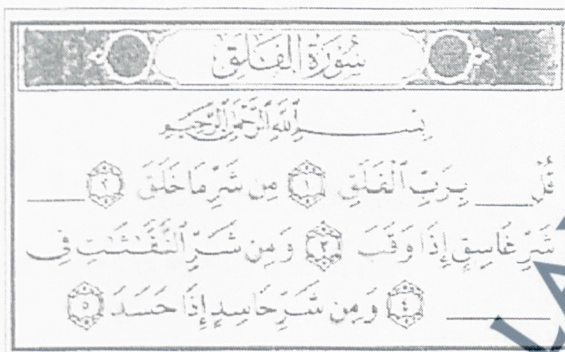 سُورَةُ الْفَلَقِ
بِسْمِ اللَّهِ الرَّحْمَٰنِ الرَّحِيمِ
قُلْ ____ بِرَبِّ الْفَلَقِ ١ مِن شَرِّ مَا خَلَقَ ٢ ____
شَرِّ غَاسِقٍ إِذَا وَقَبَ ٣ وَمِن شَرِّ النَّفَّاثَاتِ فِي
____ ٤ وَمِن شَرِّ حَاسِدٍ إِذَا حَسَدَ ٥